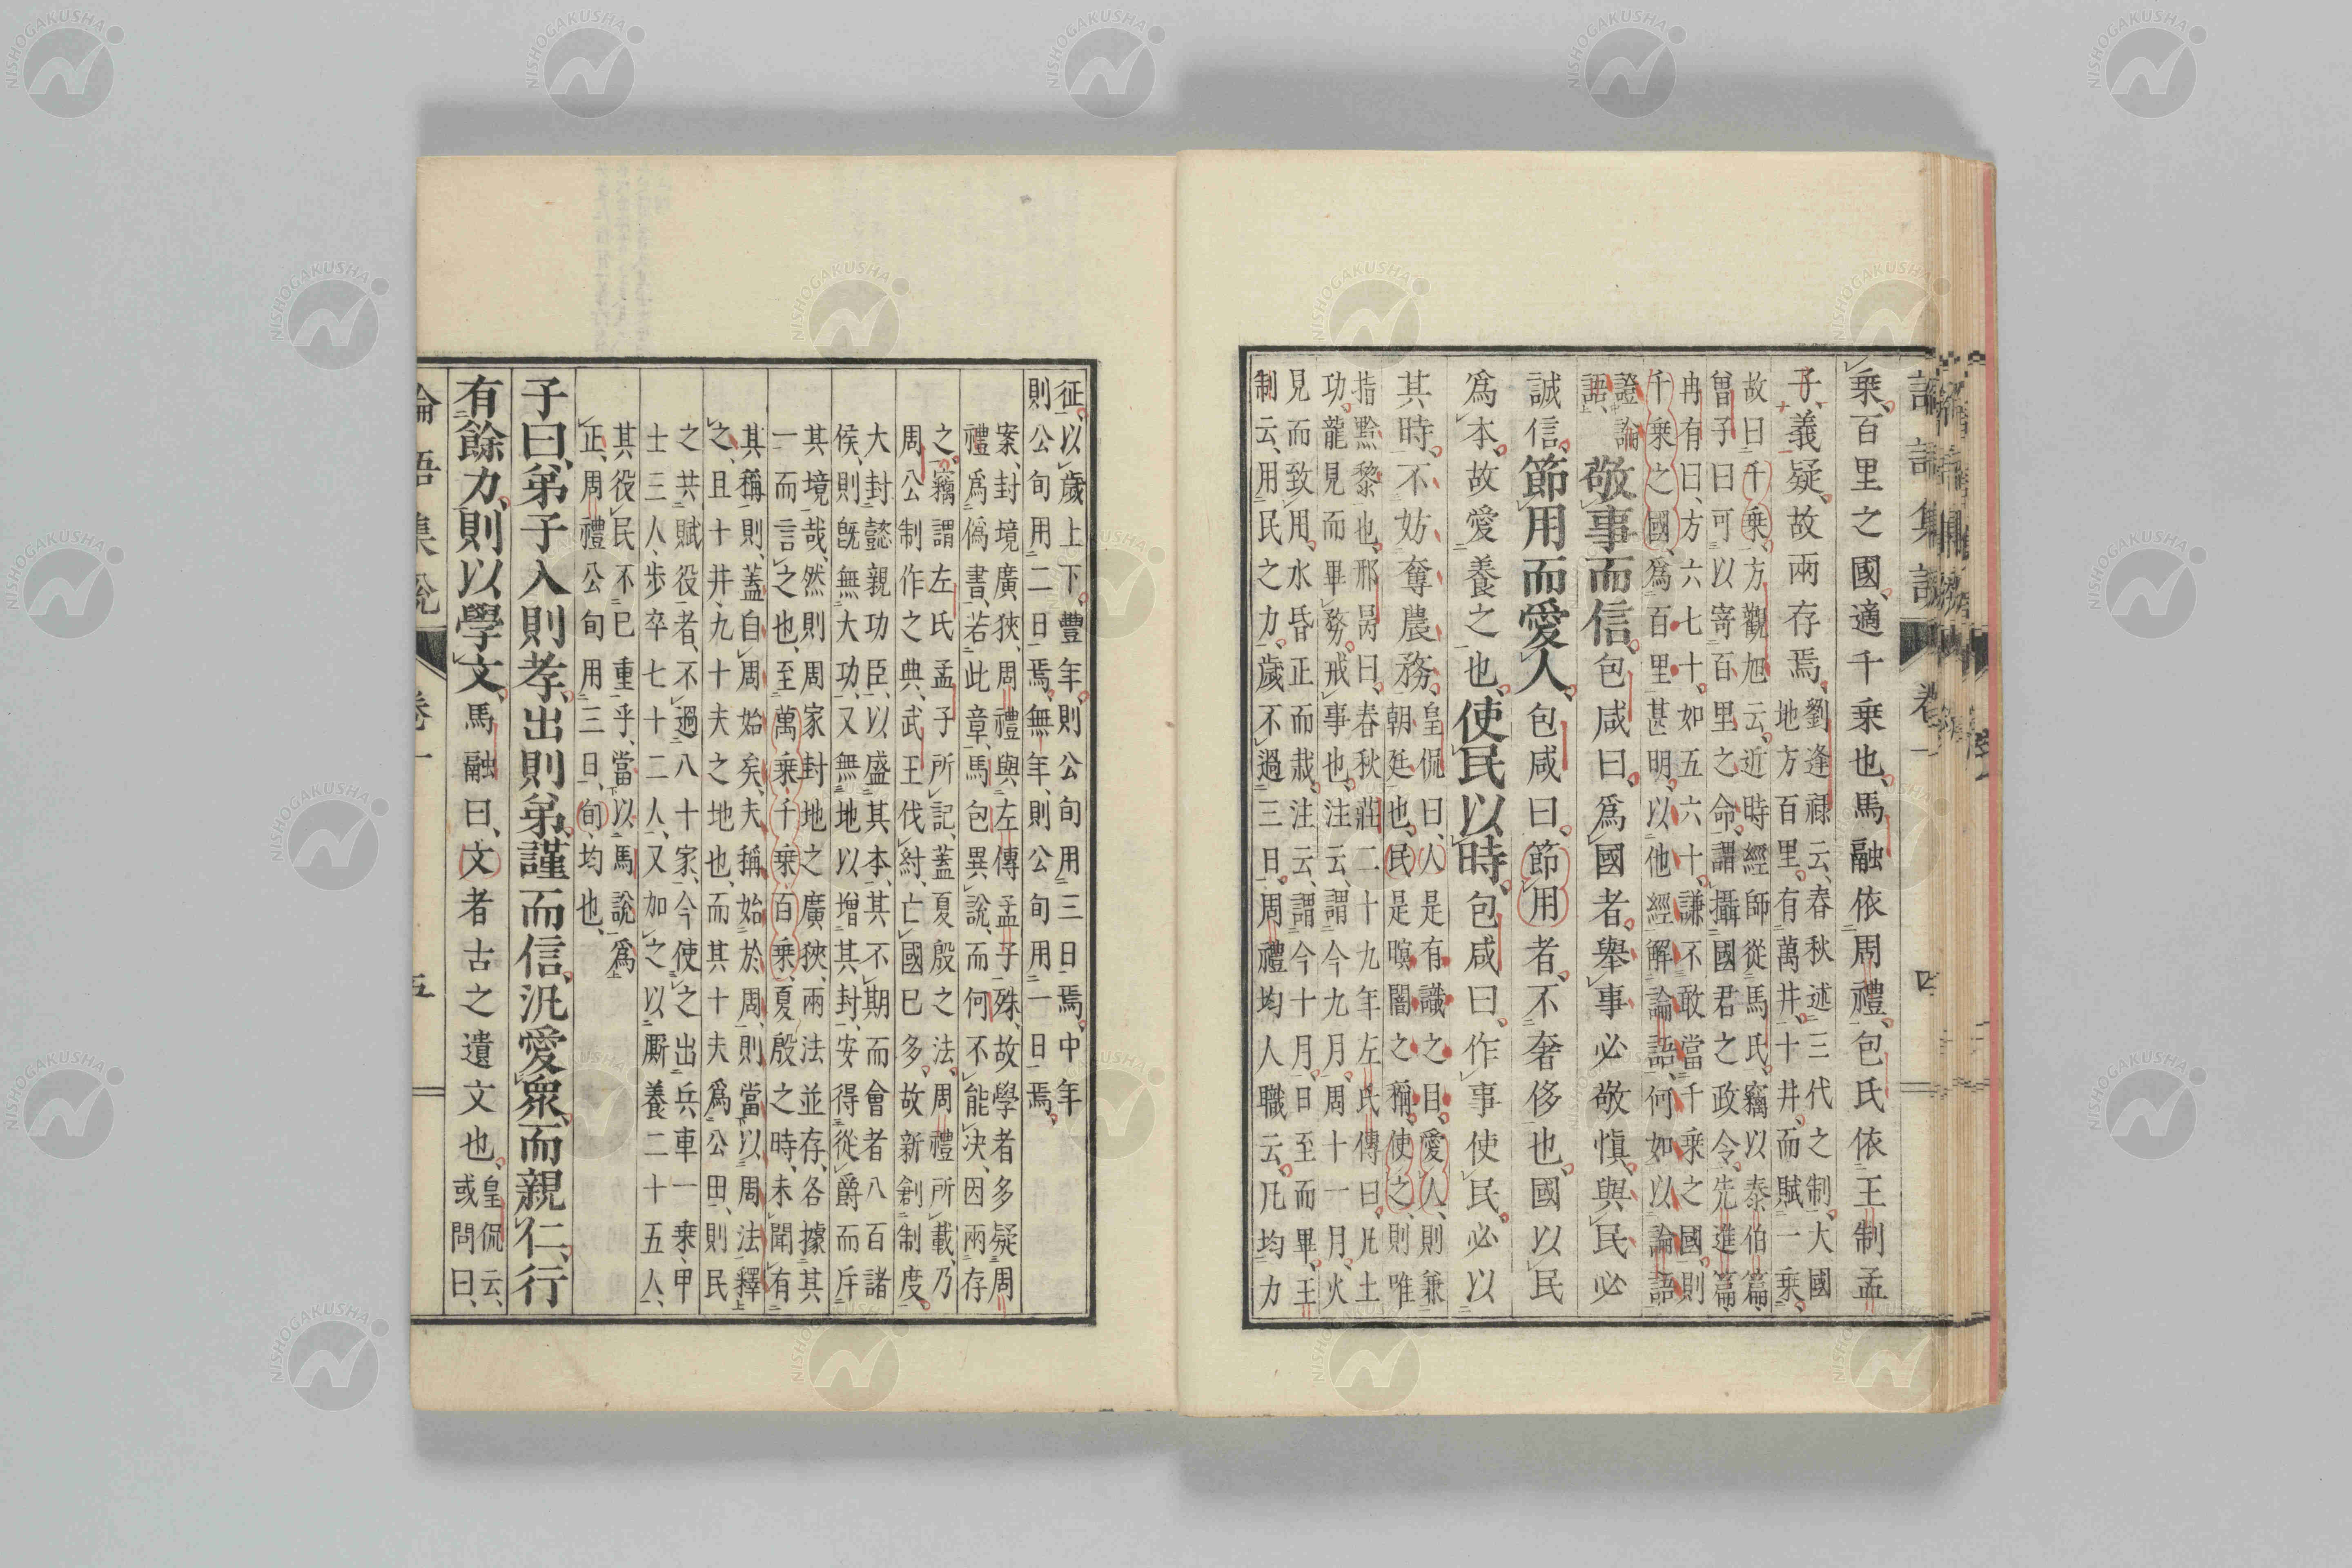 論語集說 卷一 四
乗、百里之國、適千乗也、馬融依周禮、包氏依王制孟
子、義疑、故兩存焉、劉逢祿云、春秋述三代之制、大國
地方百里、有萬井、十井而賦一乗、
故曰千乗、方觀旭云、近時經師從馬氏、竊以泰伯篇、
曾子曰可以寄百里之命、謂攝國君之政令、先進篇、
冉有曰、方六七十、如五六十、謙不敢當千乗之國、則
千乗之國、爲百里甚明、以他經解論語、何如以論語
證論
語、
敬事而信、包咸曰、爲國者、舉事必敬愼、與民必
誠信、節用而愛人、包咸曰、節用者、不奢侈也、國以民
爲本、故愛養之也、使民以時、包咸曰、作事使民、必以
其時、不妨奪農務、皇侃曰、人是有識之目、愛人、則兼
朝廷也、民是暝闇之稱、使之、則唯
指黔黎也、邢昺曰、春秋莊二十九年左氏傳曰、凡土
功、龍見而畢務、戒事也、注云、謂今九月、周十一月、火
見而致用、水昏正而栽、注云、謂今十月、日至而畢、王
制云、用民之力、歲不過三日、周禮均人職云、凡均力
征、以歲上下、豐年、則公旬用三日焉、中年
則公旬用二日焉、無年、則公旬用一日焉、
案、封境廣狹、周禮與左傳孟子殊、故學者多疑周
禮爲僞書、若此章、馬包異說、而何不能決、因兩存
之、竊謂左氏孟子所記、蓋夏殷之法、周禮所載、乃
周公制作之典、武王伐紂、亡國已多、故新創制度、
大封懿親功臣、以盛其本、其不期而會者八百諸
侯、則旣無大功、又無地以增其封、安得從爵而斥
其境哉、然則周家封地之廣狹、兩法並存、各據其
一而言之也、至萬乗千乗百乗、夏殷之時、未聞有
其稱、則蓋自周始矣、夫稱始於周、則當以周法釋
之、且十井、九十夫之地也、而其十夫爲公田、則民
之共賦役者、不過八十家、今使之出兵車一乗、甲
士三人、步卒七十二人、又加之以厮養二十五人、
其役民不已重乎、當以馬說爲
正、周禮公旬用三日、旬、均也、
子曰、弟子入則孝、出則弟、謹而信、汎愛衆、而親仁、行
有餘力、則以學文、馬融曰、文者古之遺文也、皇侃云、
或問曰、
論語集說 卷一 五